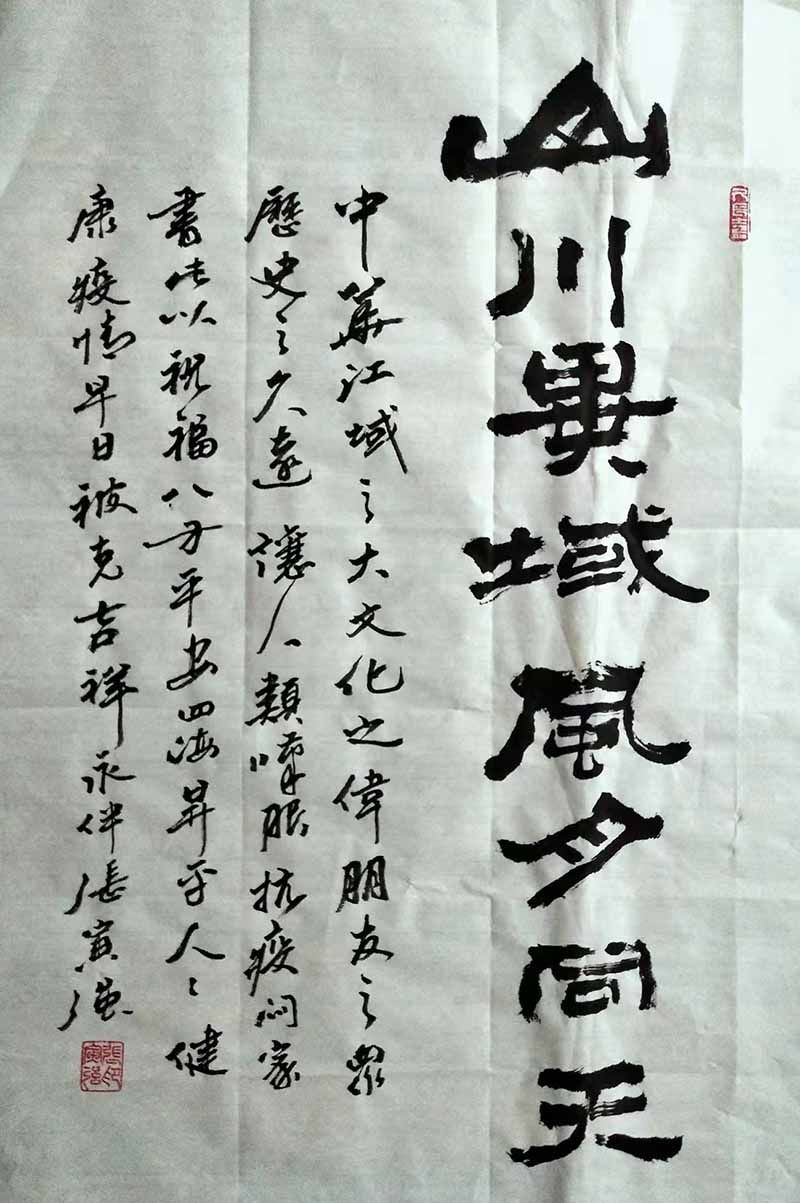 山川異域風月同天
中華江域之大文化之偉朋友之眾
歷史之久遠讓人類嘩眼抗疫悶家
書此以祝福八方平安四海昇平人人健
康疫情早日被克吉祥永伴張寅強
張印寅強